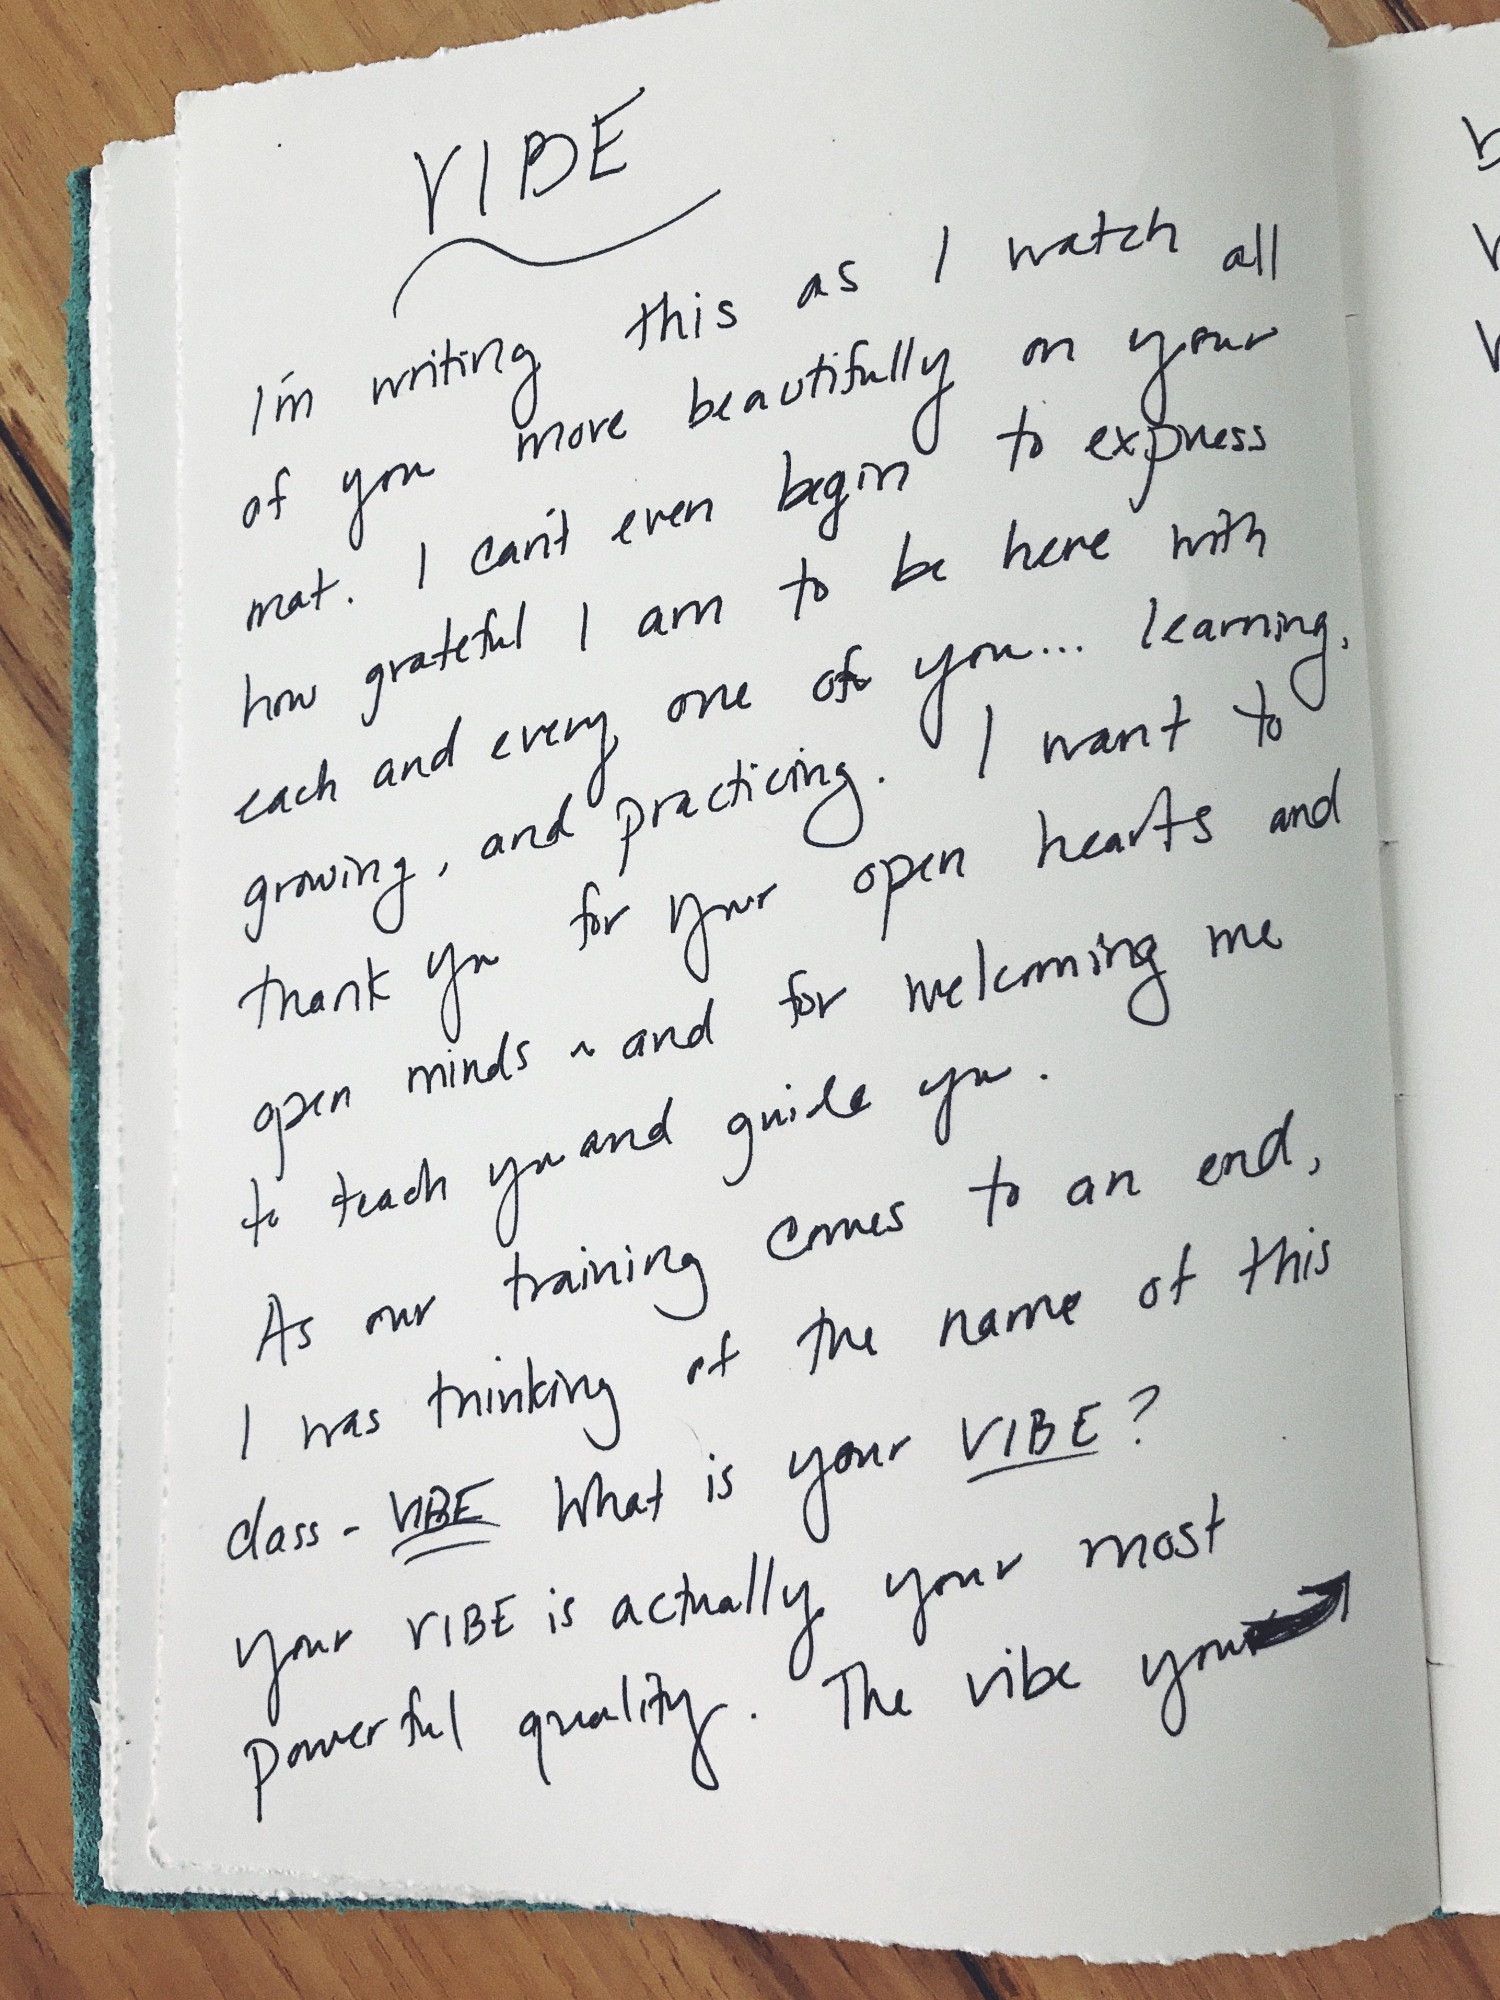 VIBE
I'm writing this as I watch all
of you more beautifully on your
mat. I can't even begin to express
how grateful I am to be here with
each and every one of you... learning,
growing, and practicing. I want to
thank you for your open hearts and
open minds ~ and for welcoming me
to teach you and guide you.
As our training comes to an end,
I was thinking of the name of this
class - VIBE What is your VIBE?
your VIBE is actually your most
powerful quality. The vibe you